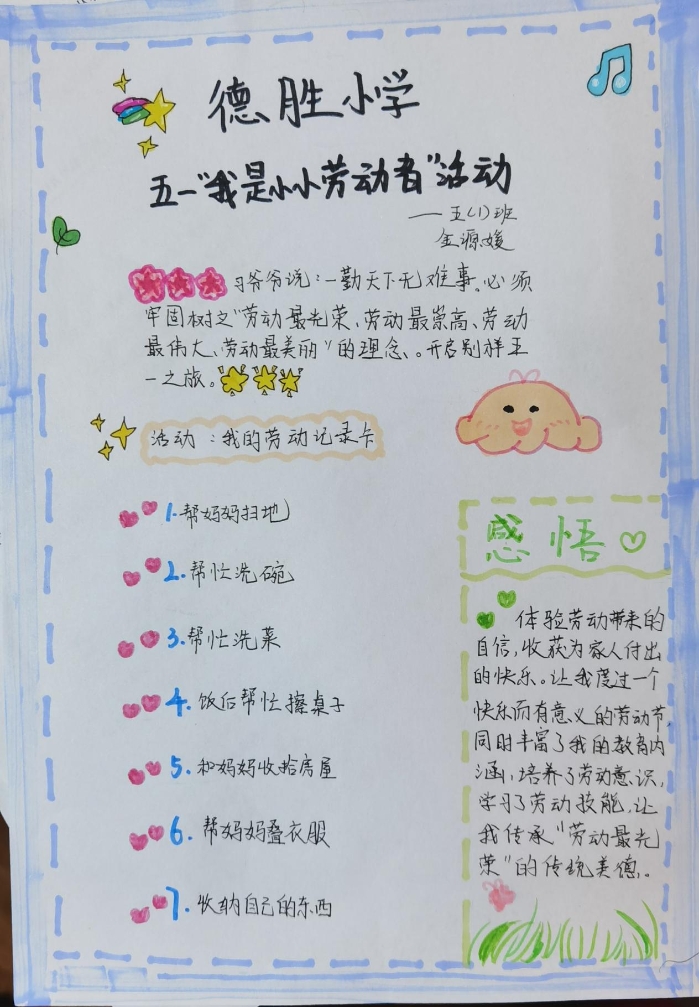 德胜小学
五一“我是小小劳动者”活动
——五(1)班
金源媛
习爷爷说：一勤天下无难事。必须
牢固树立“劳动最光荣、劳动最崇高、劳动
最伟大、劳动最美丽”的理念、。开启别样五
一之旅。
活动：我的劳动记录卡
1.帮妈妈扫地
2.帮忙洗碗
3.帮忙洗菜
4.饭后帮忙擦桌子
5.和妈妈收拾房屋
6.帮妈妈叠衣服
7.收纳自己的东西
感悟
体验劳动带来的
自信,收获为家人付出
的快乐。让我度过一个
快乐而有意义的劳动节,
同时丰富了我的教育内
涵,培养了劳动意识,
学习了劳动技能,让
我传承“劳动最光
荣”的传统美德、。